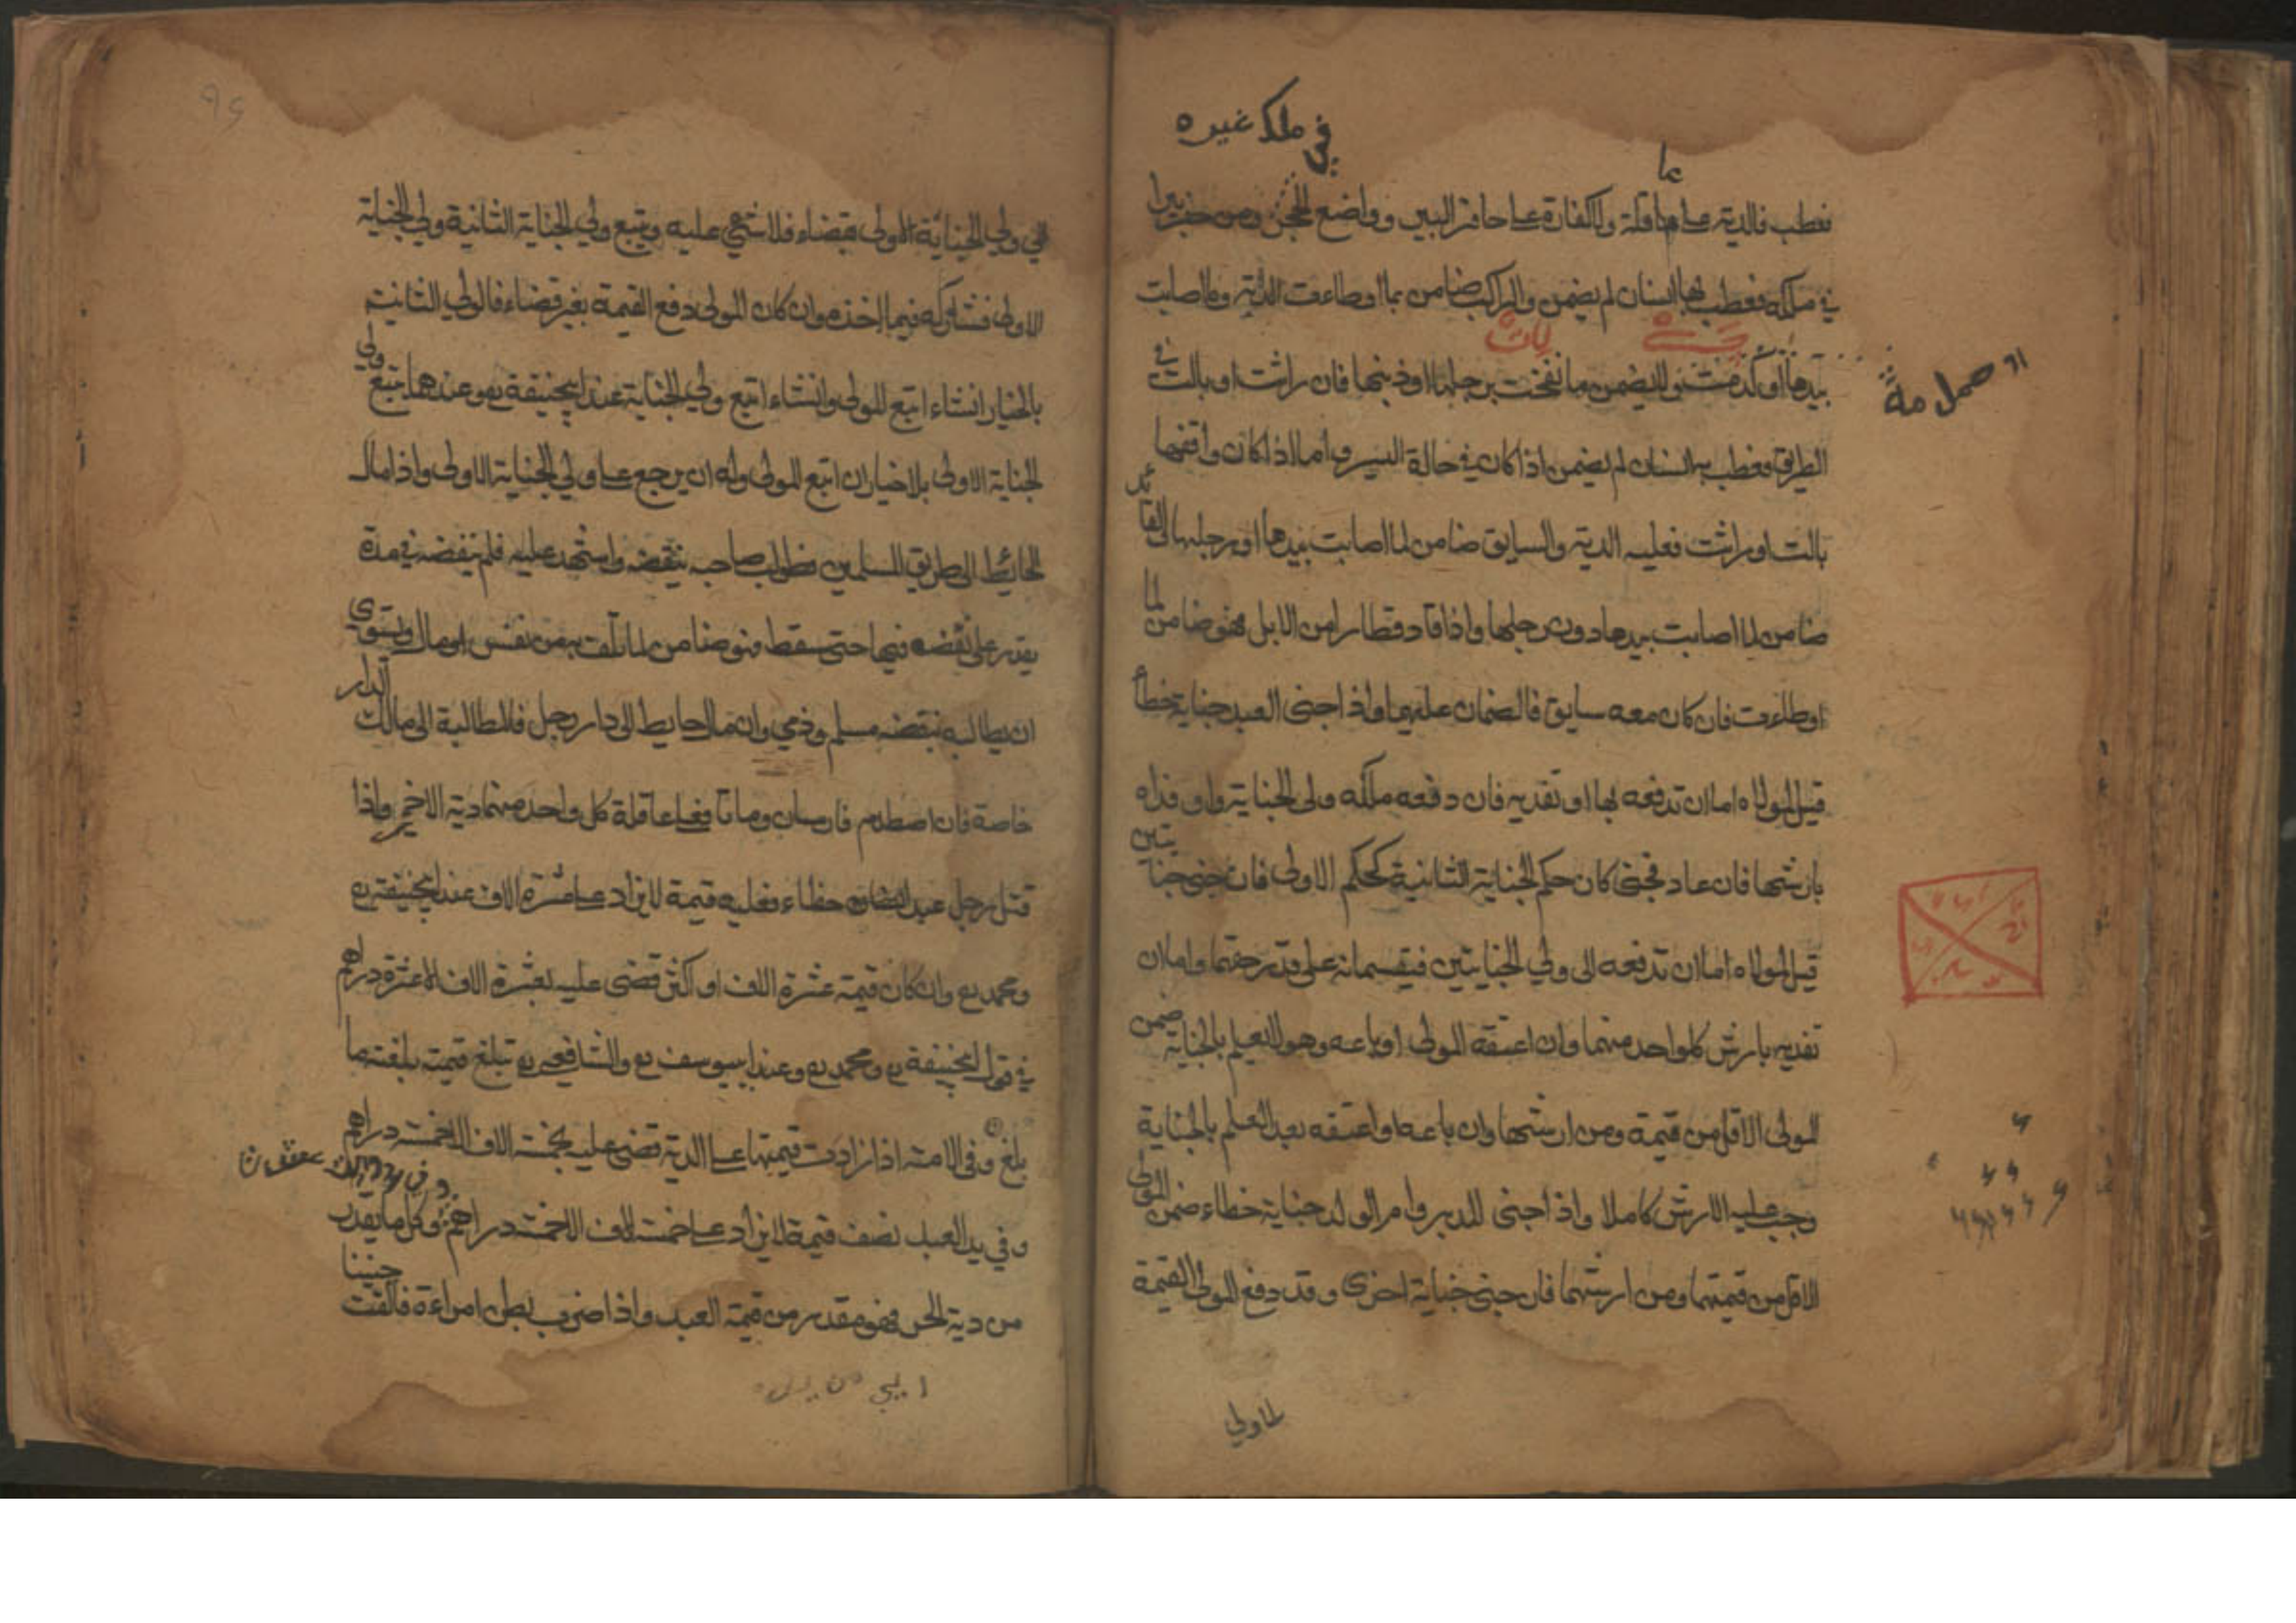 في ملك غيره
عا
فعطب فالدية على عاقلة والكفارة على حافر البير وواضع الحجر ومن حفر بيرا
في ملكه فعطب بها انسان لم يضمن والراكب ضامن بما اوطاءت الدابة وما اصابت
بيدها او كدمت ولا يضمن ما نفخت برجلها او ذنبها فان راثت او بالت في
الطريق فعطب به انسان لم يضمن اذا كان في حالة السير واما اذا كان واقفها
بالت او راثت فعليه الدية والسايق ضامن لما اصابت بيدها او رجلها والقائد
ضامن لما اصابت بيدها دون رجلها واذا قاد قطارا من الابل فهو ضامن لما
اوطاءت فان كان معه سايق فالضمان عليهما واذا جنى العبد جناية خطأ
قيل لمولاه اما ان تدفعه بها او تفديه فان دفعه ملكه ولى الجناية وان فداه
بارشها فان عاد فجنى كان حكم الجناية الثانية كحكم الاولى فان جنى جنايتين
قيل لمولاه اما ان تدفعه الى ولي الجنايتين فيقسمانه على قدر حقهما واما ان
تفديه بارش كلواحد منهما وان اعتقه المولى او باعه وهو لا يعلم بالجناية ضمن
المولى الاقل من قيمة ومن ارشها وان باعه او اعتقه بعد العلم بالجناية
وجب عليه الارش كاملا واذا جنى المدبر وام الولد جناية خطاء ضمن المولى
الاقل من قيمتهما ومن ارشهما فان جنى جناية اخرى وقد دفع المولى القيمة
الى ولي الجناية الاولى بقضاء فلا شيء عليه ويتبع ولي الجناية الثانية ولي الجناية
الاولى فشاركه فيما اخذه وان كان المولى دفع القيمة بغير قضاء فالولي الثانية
بالخيار انشاء اتبع المولى وانشاء اتبع ولي الجناية عند ابيحنيفة وعندهما يتبع ولي
الجناية الاولى بلا خيار ان اتبع المولى وله ان يرجع على ولي الجناية الاولى واذا مال
الحائط الى طريق المسلمين فطولب صاحبه بنقضه واشهد عليه فلم ينقضه في مدة
يقدر على نقضه فيها حتى سقط فهو ضامن لما تلف به من نفس او مال ويستوي
ان يطالبه بنقضه مسلم وذمي وان مال حايط الى دار رجل فالمطالبة الى مالك الدار
خاصة فان اصطدم فارسان وماتا فعلى عاقلة كل واحد منهما دية الاخر واذا
قتل رجل عبد خطاء فعليه قيمة لا يزاد على عشرة الاف عند ابيحنيفة رح
ومحمد رح وان كان قيمته عشرة الاف او اكثر قضى عليه بعشرة الاف الا عشرة دراهم
في قول ابيحنيفة رح ومحمد رح وعند ابيوسف رح والشافعي رح تبلغ قيمته بلغت ما
بلغ وفي الامة اذا زادت قيمتها على الدية قضى عليه بخمسة الاف الا خمسة دراهم
وفي يد العبد نصف قيمة لا يزاد على خمسة الاف الا خمسة دراهم وكل ما يقدر
من دية الحر فهو مقدر من قيمة العبد واذا ضرب بطن امراءة فالقت جنينا